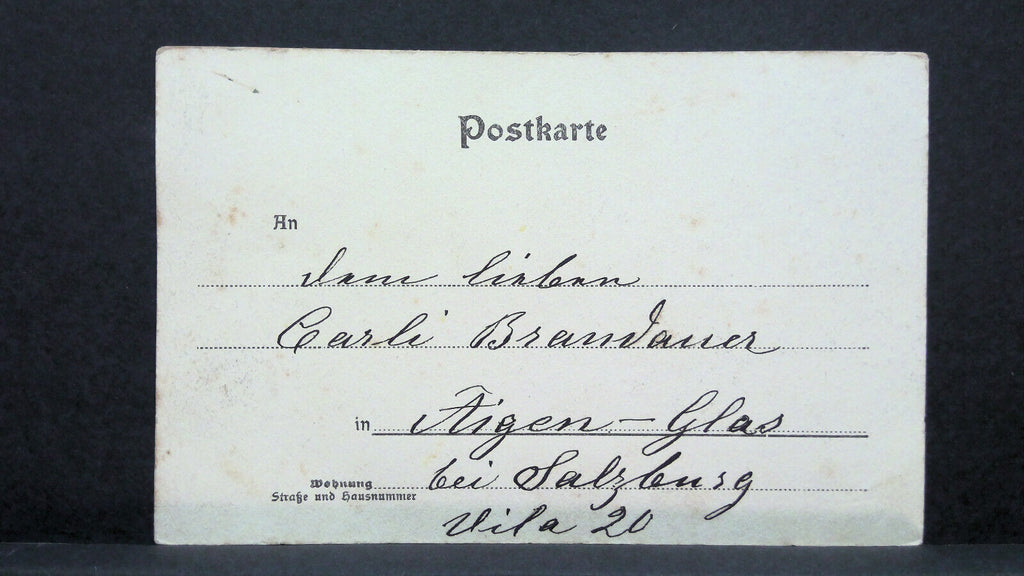 Postkarte
An
dem lieben
Carli Brandauer
in Aigen-Glas
Wohnung bei Salzburg
Straße und Hausnummer
Vila 20